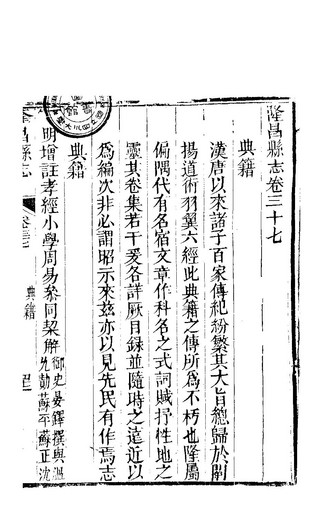 隆昌縣志卷三十七
典籍
漢唐以來諸子百家傳紀紛繁其大旨總歸於闡
揚道術羽翼六經此典籍之傳所為不朽也隆屬
偏隅代有名宿文章作科名之式詞賦抒性地之
靈其卷集若干爰各詳厥目錄並隨時之遠近以
為編次非必謂昭示來茲亦以見先民有作焉志
典籍
明增註孝經小學周易參同契解御史晏鐸撰與溫
允勛蘇平蘇正沈
隆昌縣志
卷三十七
典籍